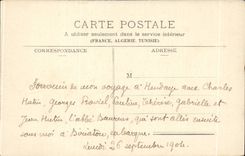 CARTE POSTALE
A utiliser seulement dans le service intérieur
(FRANCE, ALGERIE, TUNISIE)
CORRESPONDANCE ADRESSE
Souvenir de mon voyage à Hendaye avec Charles
Hutin, Georges Thérèse, Gabrielle et
Jean Hutin, l'abbé qui sont allés ensuite
sans moi à
Lundi 26 septembre 1904.